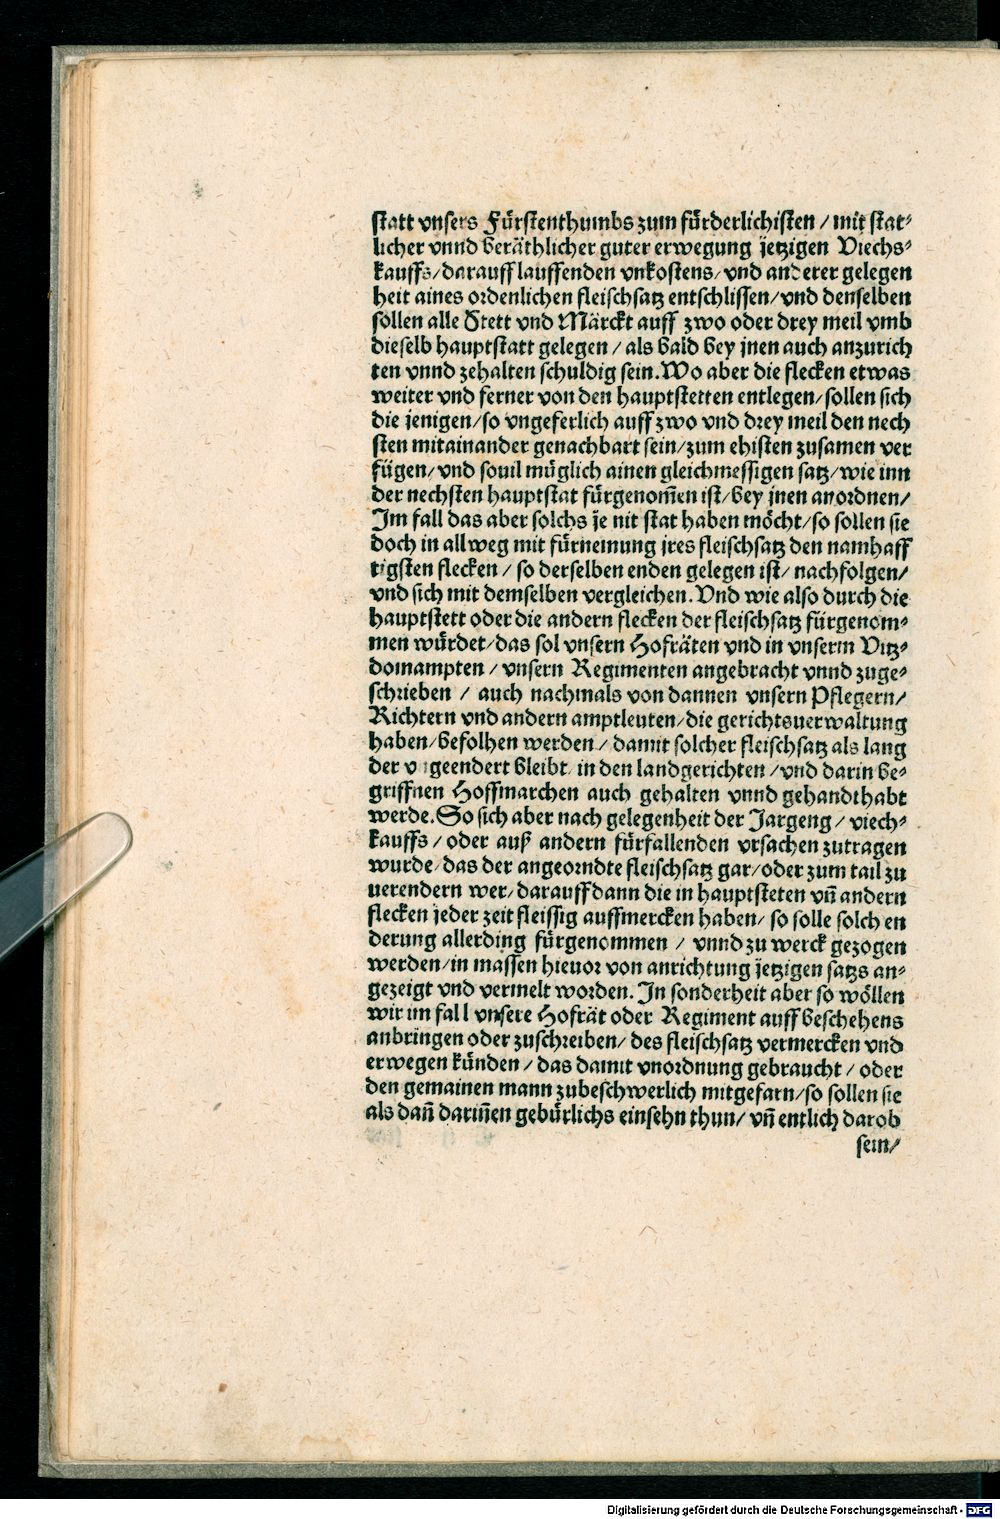 statt vnsers Fürstenthumbs zum fürderlichisten / mit stat⸗
licher vnnd beräthlicher guter erwegung jetzigen Viechs⸗
kauffs / darauff lauffenden vnkostens / vnd anderer gelegen
heit aines ordenlichen fleischsatz entschlissen / vnd denselben
sollen alle Stett vnd Märckt auff zwo oder drey meil vmb
dieselb hauptstatt gelegen / als bald bey jnen auch anzurich
ten vnnd zehalten schuldig sein. Wo aber die flecken etwas
weiter vnd ferner von den hauptstetten entlegen / sollen sich
die jenigen / so vngeferlich auff zwo vnd drey meil den nech
sten mitainander genachbart sein / zum ehisten zusamen ver
fügen / vnd souil müglich ainen gleichmessigen satz / wie inn
der nechsten hauptstat fürgenom̄en ist / bey jnen anordnen /
Im fall das aber solchs je nit stat haben möcht / so sollen sie
doch in allweg mit fürnemung jres fleischsatz den namhaff
tigsten flecken / so derselben enden gelegen ist / nachfolgen /
vnd sich mit demselben vergleichen. Vnd wie also durch die
hauptstett oder die andern flecken der fleischsatz fürgenom⸗
men würdet / das sol vnsern Hofräten vnd in vnserm Vitz⸗
domampten / vnsern Regimenten angebracht vnnd zuge⸗
schrieben / auch nachmals von dannen vnsern Pflegern /
Richtern vnd andern amptleuten / die gerichtsuerwaltung
haben / befolhen werden / damit solcher fleischsatz als lang
der vngeendert bleibt in den landgerichten / vnd darin be⸗
griffnen Hoffmarchen auch gehalten vnnd gehandthabt
werde. So sich aber nach gelegenheit der Jargeng / viech⸗
kauffs / oder auß andern fürfallenden vrsachen zutragen
wurde / das der angeorndte fleischsatz gar / oder zum tail zu
uerendern wer / darauff dann die in hauptsteten vn̄ andern
flecken jeder zeit fleissig auffmercken haben / so solle solch en
derung allerding fürgenommen / vnnd zu werck gezogen
werden / in massen hieuor von anrichtung jetzigen satzs an⸗
gezeigt vnd vermelt worden. In sonderheit aber so wöllen
wir im fall vnsere Hofrät oder Regiment auff beschehens
anbringen oder zuschreiben / des fleischsatz vermercken vnd
erwegen künden / das damit vnordnung gebraucht / oder
den gemainen mann zubeschwerlich mitgefarn / so sollen sie
als dan̄ darin̄en gebürlichs einsehn thun / vn̄ entlich darob
sein /
Digitalisierung gefördert durch die Deutsche Forschungsgemeinschaft - DFG